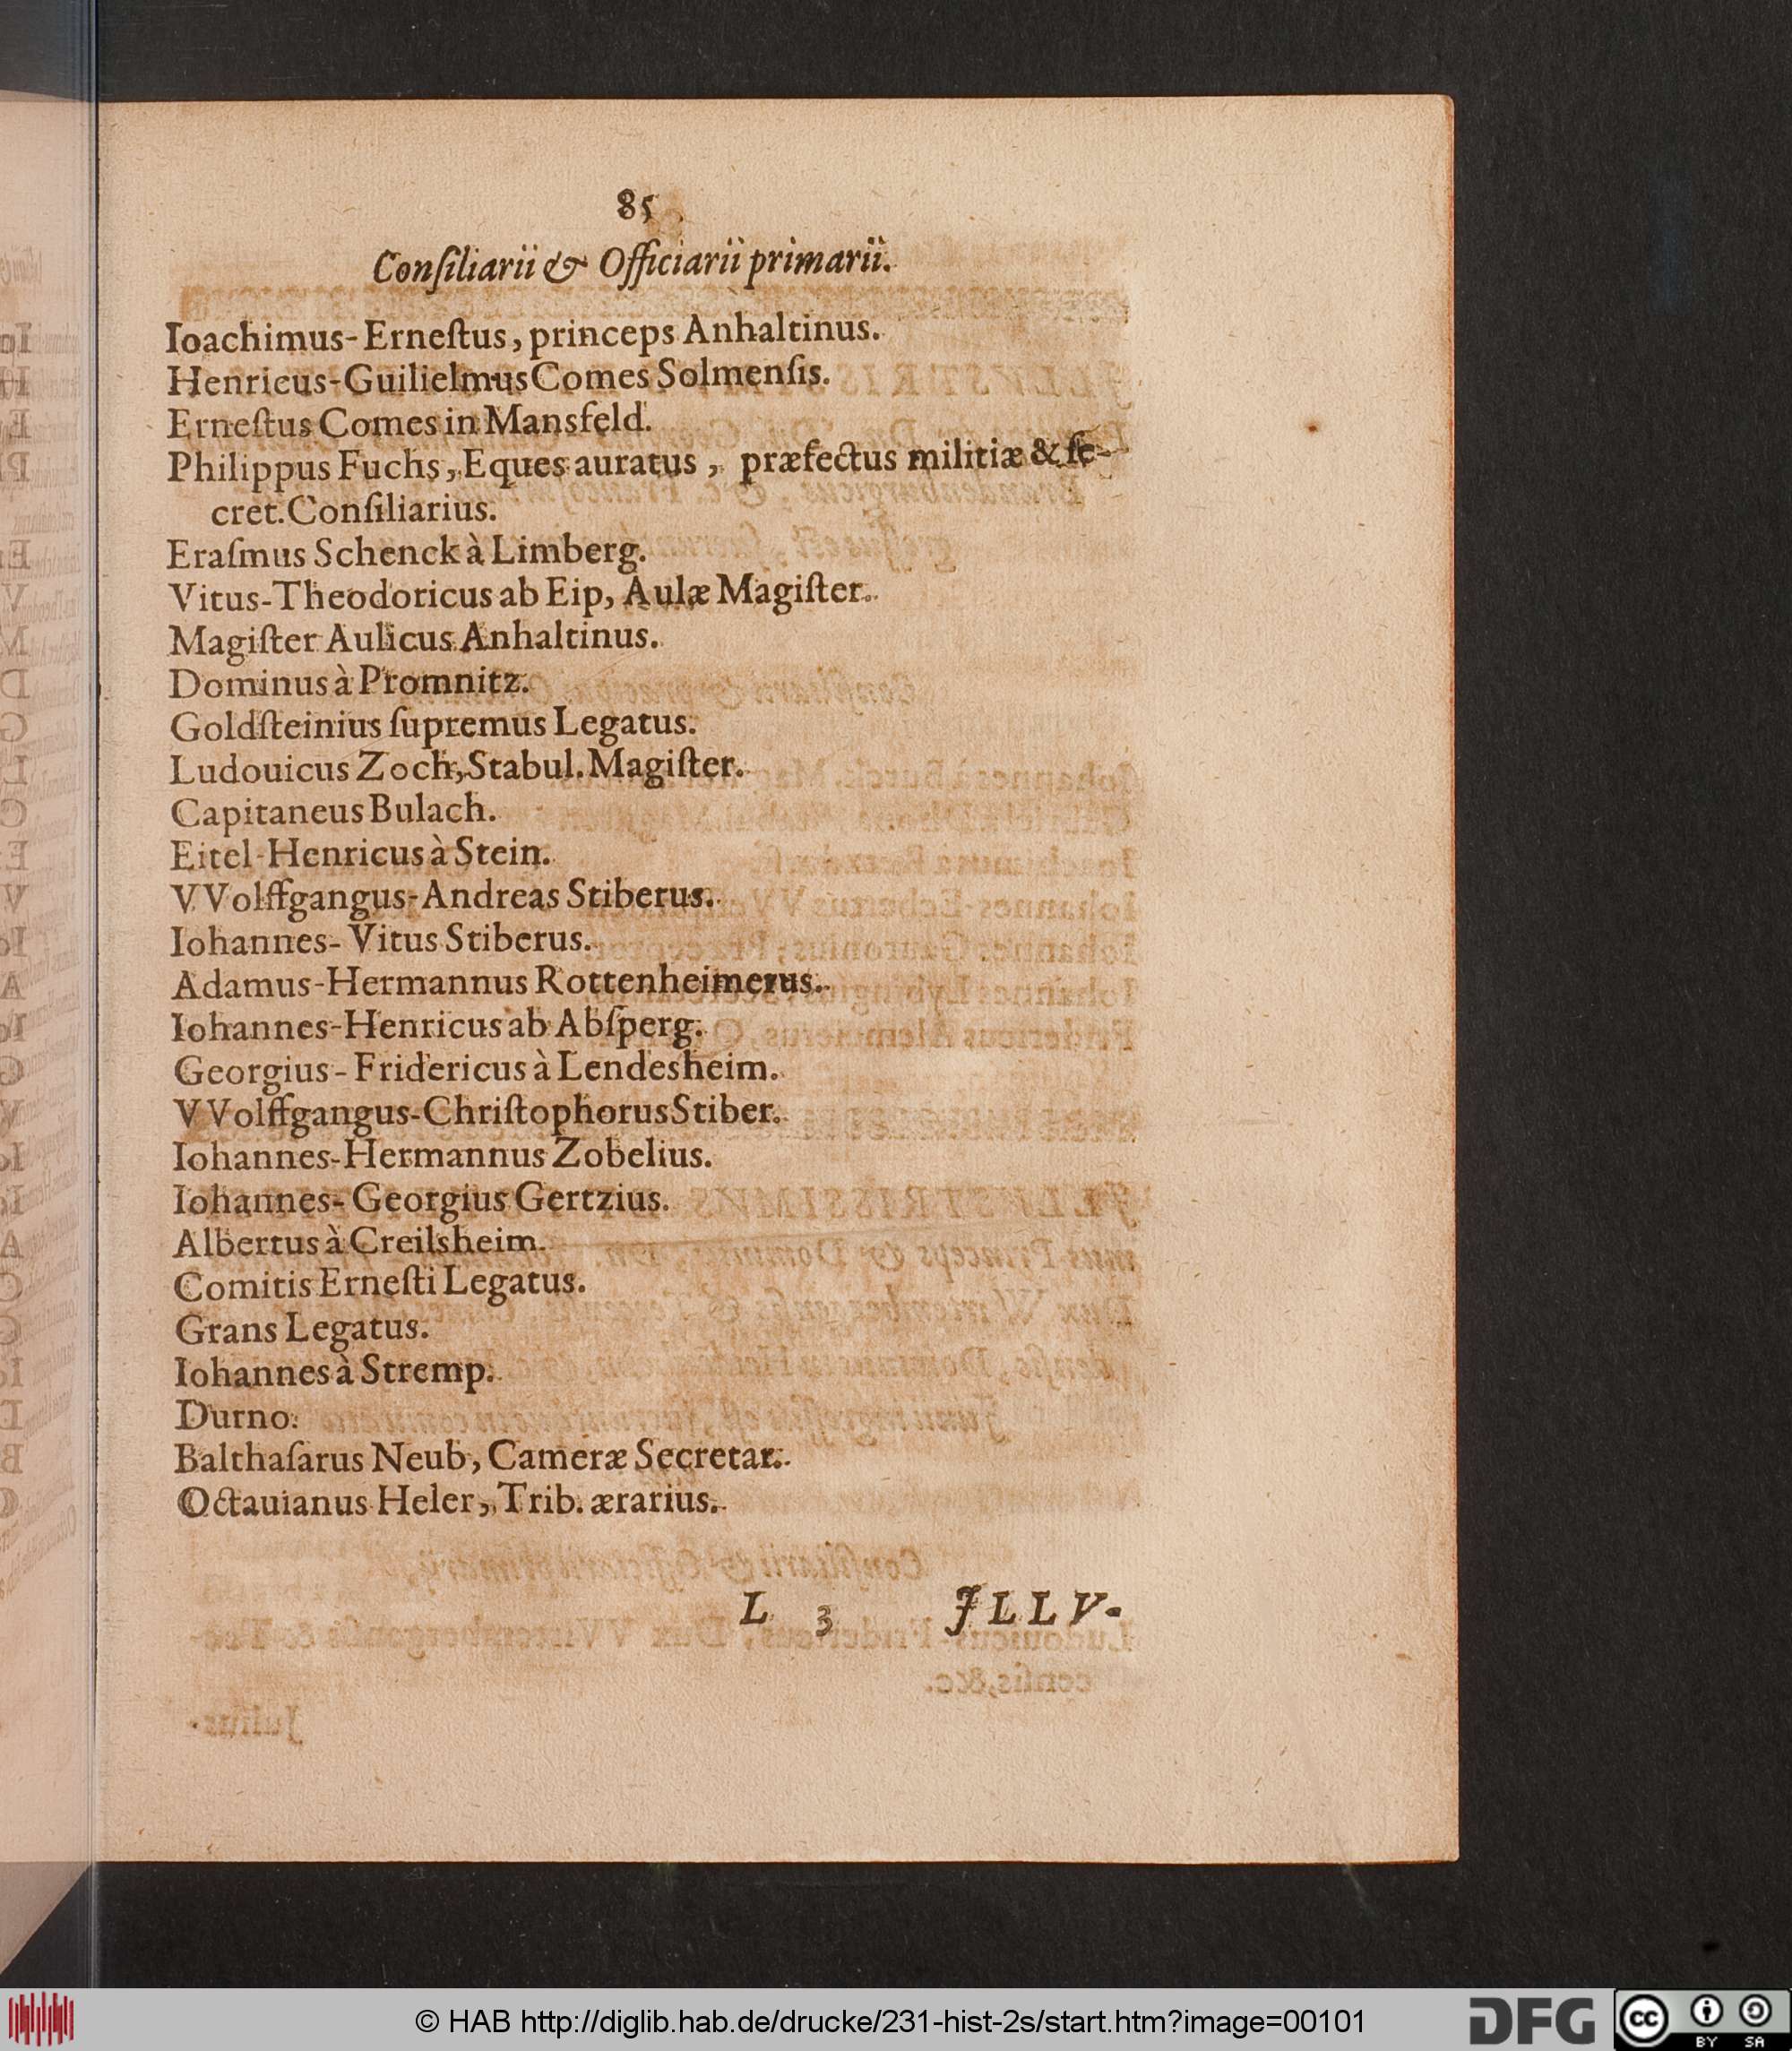 85
Conſiliarii & Officiarii primarii.
Ioachimus-Erneſtus, princeps Anhaltinus.
Henricus-Guilielmus Comes Solmenſis.
Erneſtus Comes in Mansfeld.
Philippus Fuchs, Eques auratus, præfectus militiæ & ſe-
cret. Conſiliarius.
Eraſmus Schenck à Limberg.
Vitus-Theodoricus ab Eip, Aulæ Magiſter.
Magiſter Aulicus Anhaltinus.
Dominus à Promnitz.
Goldſteinius ſupremus Legatus.
Ludouicus Zoch, Stabul. Magiſter.
Capitaneus Bulach.
Eitel-Henricus à Stein.
VVolffgangus-Andreas Stiberus.
Iohannes-Vitus Stiberus.
Adamus-Hermannus Rottenheimerus.
Iohannes-Henricus ab Abſperg.
Georgius-Fridericus à Lendesheim.
VVolffgangus-Chriſtophorus Stiber.
Iohannes-Hermannus Zobelius.
Iohannes-Georgius Gertzius.
Albertus à Creilsheim.
Comitis Erneſti Legatus.
Grans Legatus.
Iohannes à Stremp.
Durno.
Balthaſarus Neub, Cameræ Secretar.
Octauianus Heler, Trib. ærarius.
L 3 JLLV-
© HAB http://diglib.hab.de/drucke/231-hist-2s/start.htm?image=00101
DFG
cc BY SA